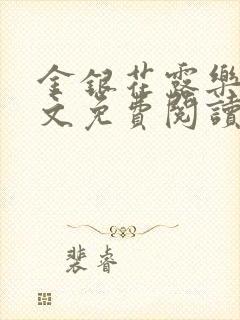 金銀花露樂
文免費閱讀
裴睿